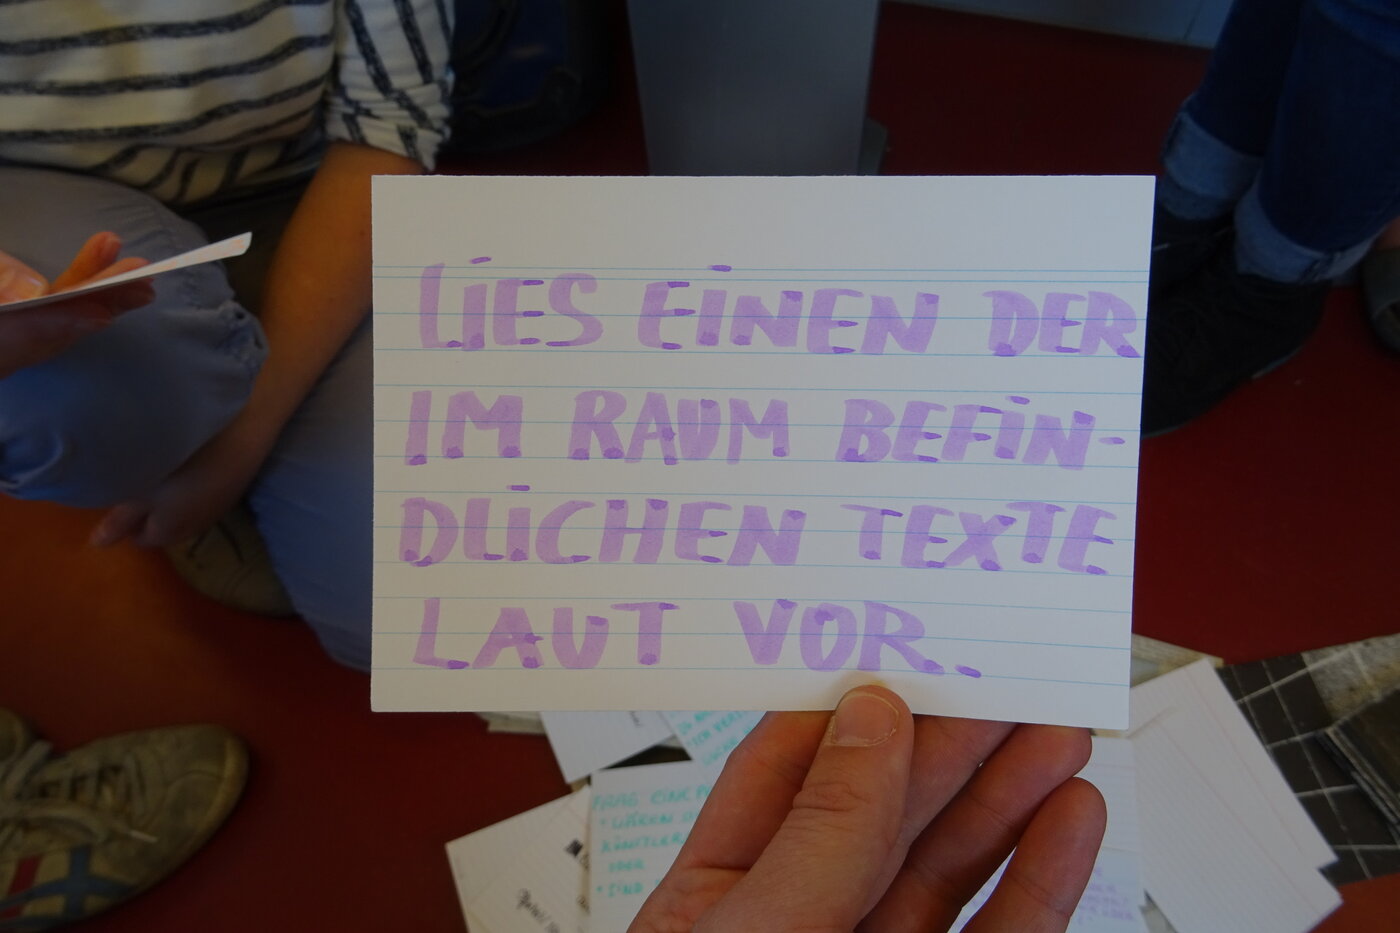 LiES EiNEN DER
IM RAUM BEFiN-
DLiCHEN TEXTE
LAUT VOR.
FRAG EINE
WÄREN
KÜNSTLER
ODER
SIND